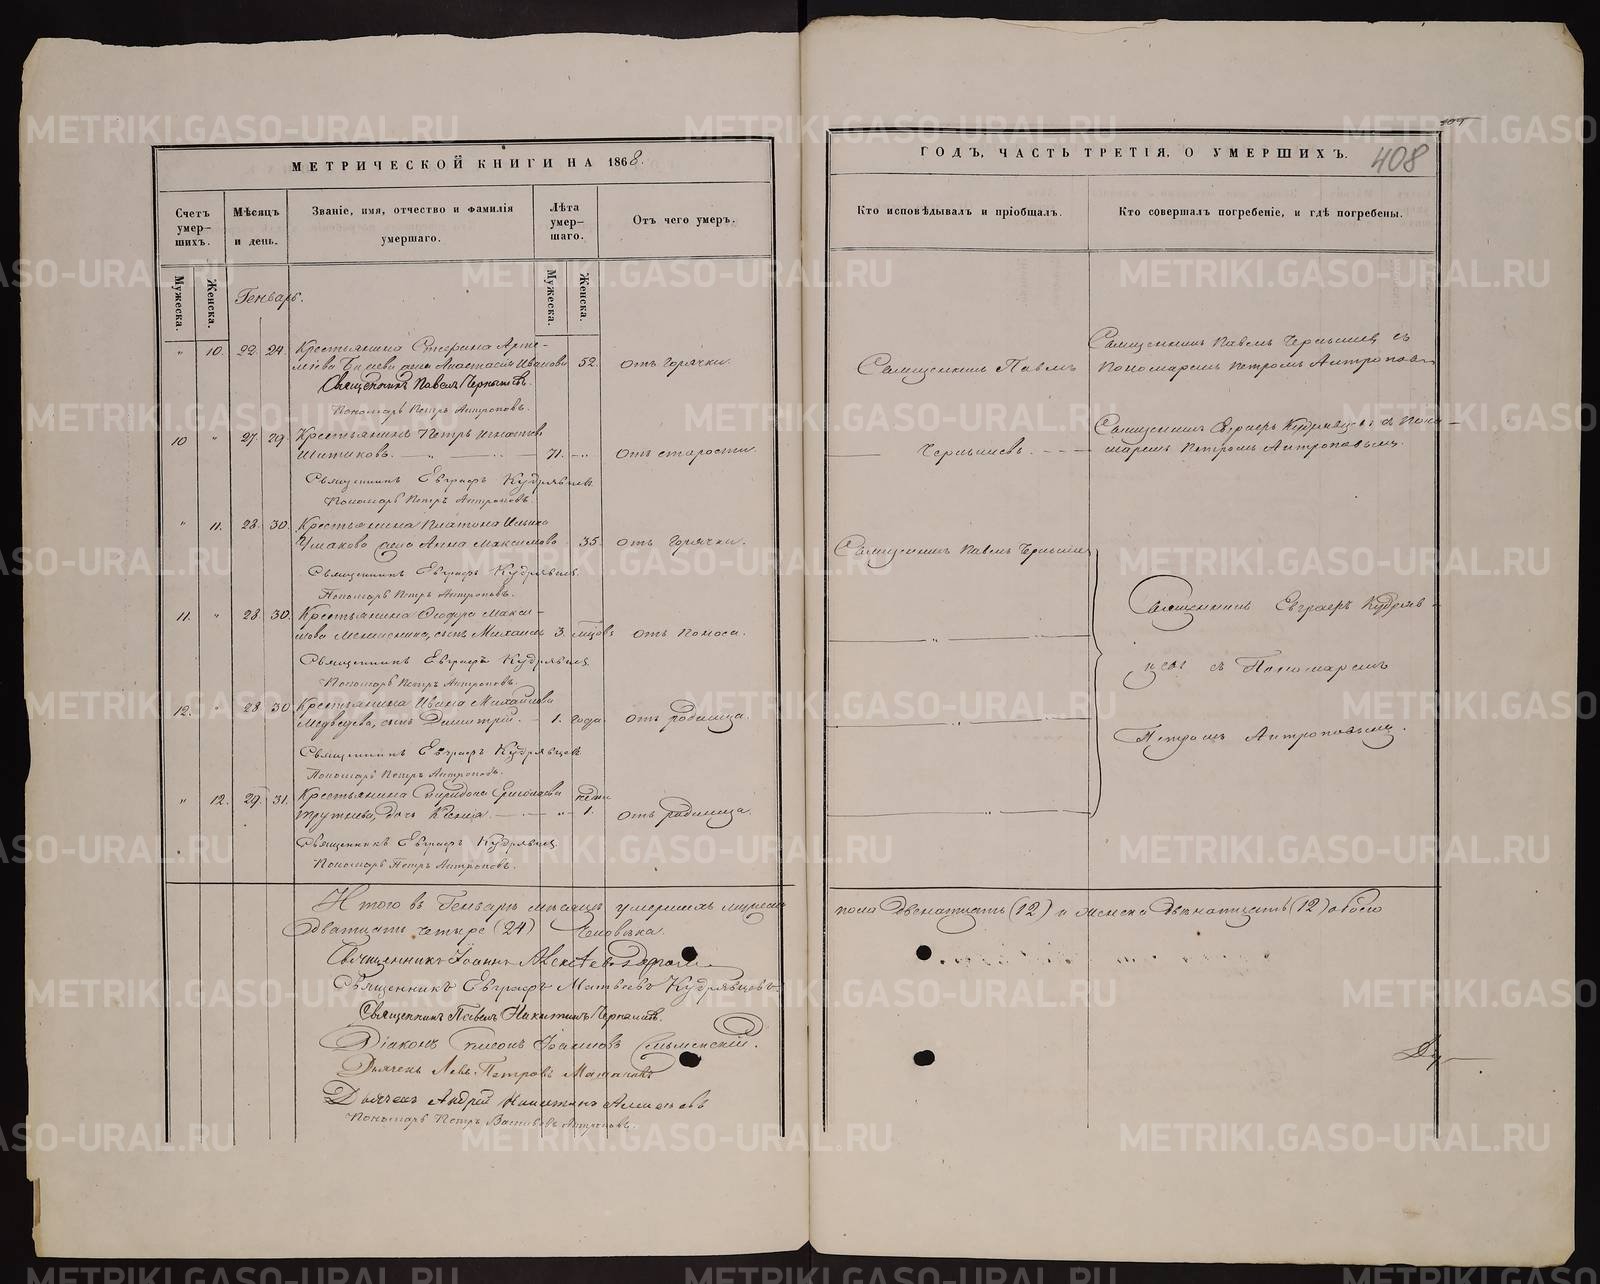 МЕТРИЧЕСКОЙ КНИГИ НА 1868.
Счетъ умер-шихъ.
Мѣсяцъ и день.
Званіе, имя, отчество и фамилія умершаго.
Лѣта умер-шаго.
Отъ чего умеръ.
Мужеска.
Женска.
Мужеска.
Женска.
Генварь.
" 10. 22. 24. Крестьянина Стефана Арте-
міева жена Анастасія Иванова 52. отъ горячки.
Священникъ Павелъ Чернышевъ.
Пономарь Петръ Антроповъ.
10 " 27. 29. Крестьянинъ Петръ Игнатьевъ
Шитиковъ. 71. отъ старости.
Священникъ Евграфъ Кудрявцевъ
Пономарь Петръ Антроповъ.
" 11. 28. 30. Крестьянина Платона Ильина
Ушакова жена Анна Максимова 35. отъ горячки.
Священникъ Евграфъ Кудрявцевъ.
Пономарь Петръ Антроповъ.
11. " 28. 30. Крестьянина Феодора Макси-
мова сынъ Михаилъ 3. мѣсяцовъ отъ поноса.
Священникъ Евграфъ Кудрявцевъ
Пономарь Петръ Антроповъ.
12. " 28. 30. Крестьянина Ивана Михайлова
Медведева, сынъ Димитрій. 1. года отъ родимца.
Священникъ Евграфъ Кудрявцевъ
Пономарь Петръ Антроповъ.
" 12. 29. 31. Крестьянина Спиридона Ермолаева
дочь Ксенія. 1. отъ родимца.
Священникъ Евграфъ Кудрявцевъ
Пономарь Петръ Антроповъ.
Итого въ Генварѣ мѣсяцѣ умершихъ мужеска
Двадцать четыре (24) Человѣка.
Священникъ Іоаннъ
Священникъ Евграфъ Матвеевъ Кудрявцовъ
Священникъ Павелъ Никитинъ Чернышевъ.
Діаконъ Іоанновъ
Дьячекъ Левъ Петровъ
Дьячекъ Андрей Никитинъ
Пономарь Петръ Антроповъ.
ГОДЪ, ЧАСТЬ ТРЕТІЯ, О УМЕРШИХЪ.
408
Кто исповѣдывалъ и пріобщалъ.
Кто совершалъ погребеніе, и гдѣ погребены.
Священникъ Павелъ
Чернышевъ.
Священникъ Павелъ Чернышевъ съ
Пономаремъ Петромъ Антроповымъ
Священникъ Евграфъ Кудрявцевъ съ Поно-
маремъ Петромъ Антроповымъ.
Священникъ Павелъ Чернышевъ
Священникъ Евграфъ Кудряв-
цевъ съ Пономаремъ
Петромъ Антроповымъ.
пола двенатцать (12) и женска двенатцать (12) обоего
METRIKI.GASO-URAL.RU